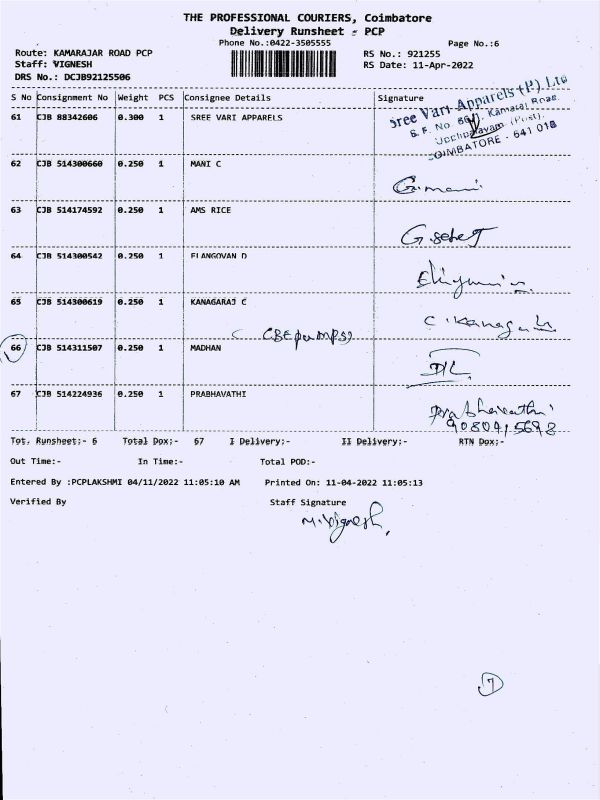 THE PROFESSIONAL COURIERS, Coimbatore
Delivery Runsheet - PCP
Phone No.:0422-3505555 Page No.:6
Route: KAMARAJAR ROAD PCP RS No.: 921255
Staff: VIGNESH RS Date: 11-Apr-2022
DRS No.: DCJB92125506
S No Consignment No Weight PCS Consignee Details Signature
61 CJB 88342606 0.300 1 SREE VARI APPARELS
Sree Vari Apparels (P) Ltd
S. F. No. Kamaraj Road,
(Post),
COIMBATORE - 641 015
62 CJB 514300660 0.250 1 MANI C
G. mani
63 CJB 514174592 0.250 1 AMS RICE
64 CJB 514300542 0.250 1 ELANGOVAN D
65 CJB 514300619 0.250 1 KANAGARAJ C
66 CJB 514311507 0.250 1 MADHAN
67 CJB 514224936 0.250 1 PRABHAVATHI
Prabhavathi
Tot. Runsheet:- 6 Total Dox:- 67 I Delivery:- II Delivery:- RTN Dox:-
Out Time:- In Time:- Total POD:-
Entered By :PCPLAKSHMI 04/11/2022 11:05:10 AM Printed On: 11-04-2022 11:05:13
Verified By Staff Signature
M. Vignesh
7